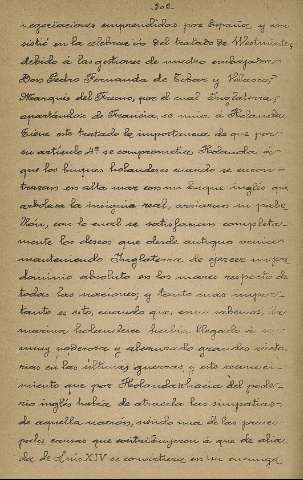 negociaciones emprendidas por España, y con
sistió en la celebración del tratado de Westminster,
debido á las gestiones de nuestro embajador
Don Pedro Fernández de Tobar y Velasco,
Marqués del Fresno, por el cual Inglaterra,
apartándose de Francia, se unía á Holanda.
Tiene este tratado la importancia de que por
su artículo 4º se comprometía Holanda á
que los buques holandeses cuando se encon
trasen en alta mar con un buque inglés que
arbolara la insignia real, arriarían su pabe
llón, con lo cual se satisfacían completa-
mente los deseos que desde antiguo venía
manteniendo Inglaterra de ejercer un
dominio absoluto en los mares respecto de
todas las naciones; y tanto más impor-
tante es esto, cuando que, como sabemos, la
marina holandesa había llegado á ser
muy poderosa y alcanzado grandes victo
rias en las últimas guerras, y este reconoci-
miento que por Holanda se hacía del pode-
río inglés había de atraerla las simpatías
de aquella nación, siendo una de las princi
pales causas que contribuyeron á que de alia
da de Luis XIV se convirtiera en su enemiga